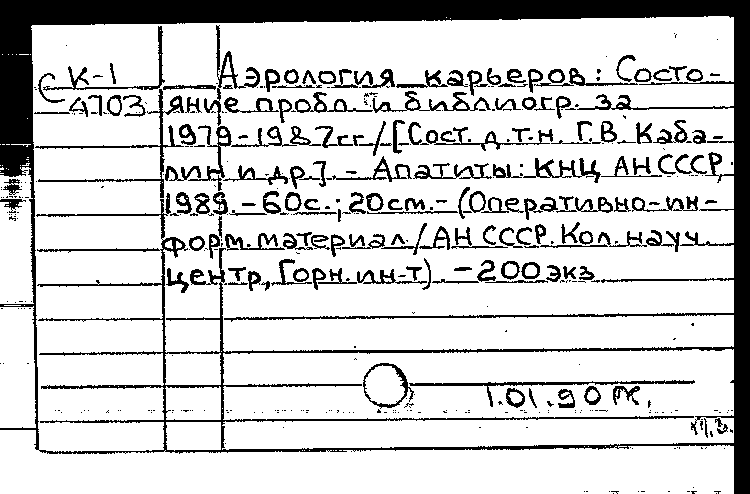 С К-1 Аэрология карьеров: Состо-
4703 яние пробл. и библиогр. за
1979-1987гг/[Сост. д.т.н. Г.В. Каба-
лин и др.]. - Апатиты: КНЦ АН СССР,
1989. - 60с.; 20см. - (Оперативно-ин-
форм. материал/АН СССР. Кол. науч.
центр, Горн. ин-т). - 200 экз
1.01.90